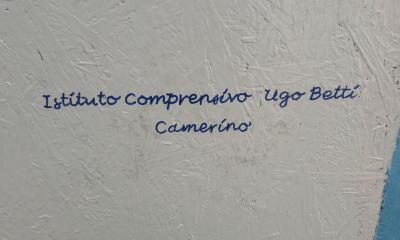 Istituto Comprensivo Ugo Betti
Camerino